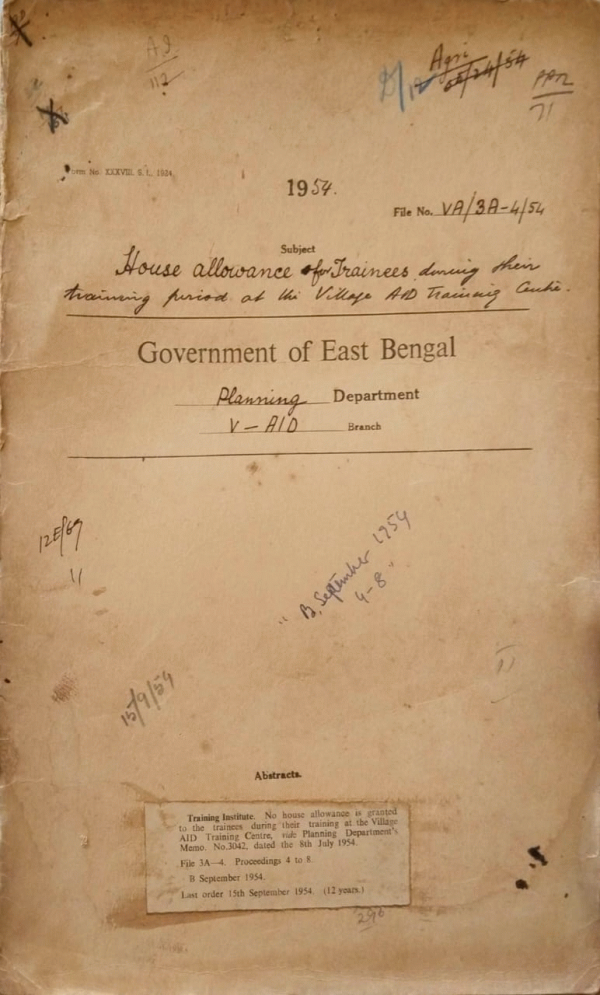 A I
112
D/12
Agri
56/24/54
71
Form No. XXXVIII. S. L. 1924.
1954.
File No. VA/3A-4/54
Subject
House allowance of Trainees during their
training period at the Village AID Training Centre.
Government of East Bengal
Planning Department
V-AID Branch
12E/69
11
"B. September 1954
4-8"
15/9/54
11
Abstracts.
Training Institute. No house allowance is granted
to the trainees during their training at the Village
AID Training Centre, vide Planning Department's
Memo. No.3042, dated the 8th July 1954.
File 3A—4. Proceedings 4 to 8.
B September 1954.
Last order 15th September 1954. (12 years.)
296